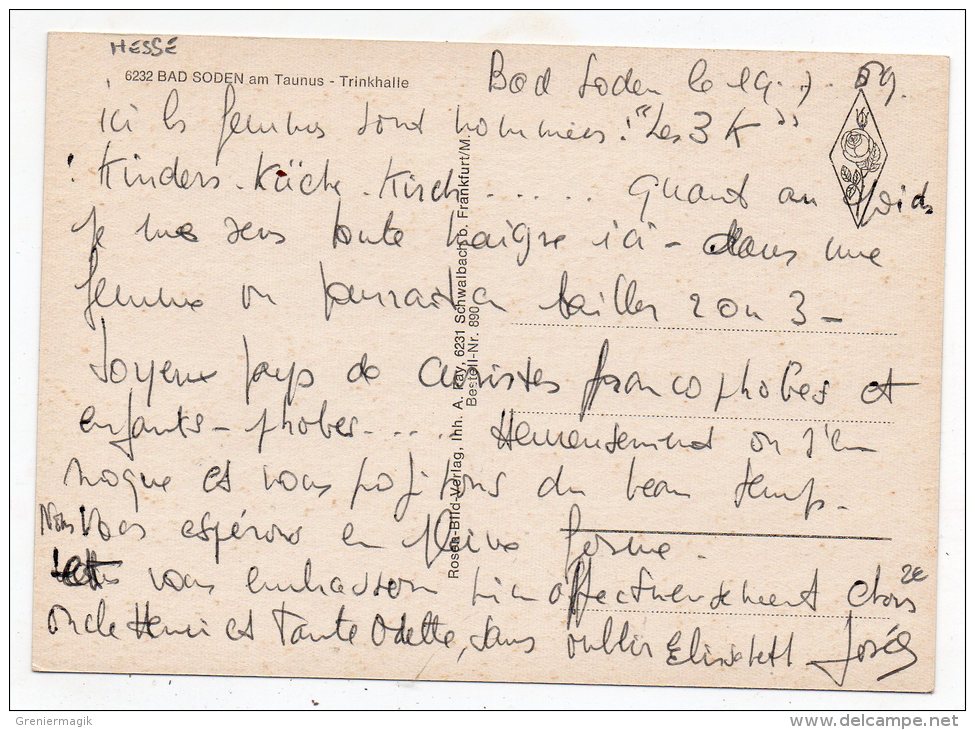 HESSE
6232 BAD SODEN am Taunus - Trinkhalle
Bad Soden le 19.7. 89.
ici les femmes sont nommées : "Les 3 K"
: Kinders - Küche - Kirch...... Quant au Poids
je me sens toute maigre ici - dans une
femme on pourrait en tailler 2 ou 3 -
Joyeux pays de curistes francophobes et
enfants-phobes..... Heureusement on s'en
moque et nous profitons du beau temps.
Nous vous espérons en pleine forme.
vous embrassons bien affectueusement chers
oncle Henri et Tante Odette, sans oublier Elisabeth José
Rosen-Bild-Verlag, Inh. A. Kay, 6231 Schwalbach b. Frankfurt/M.
Bestell-Nr. 890
Greniermagik
www.delcampe.net